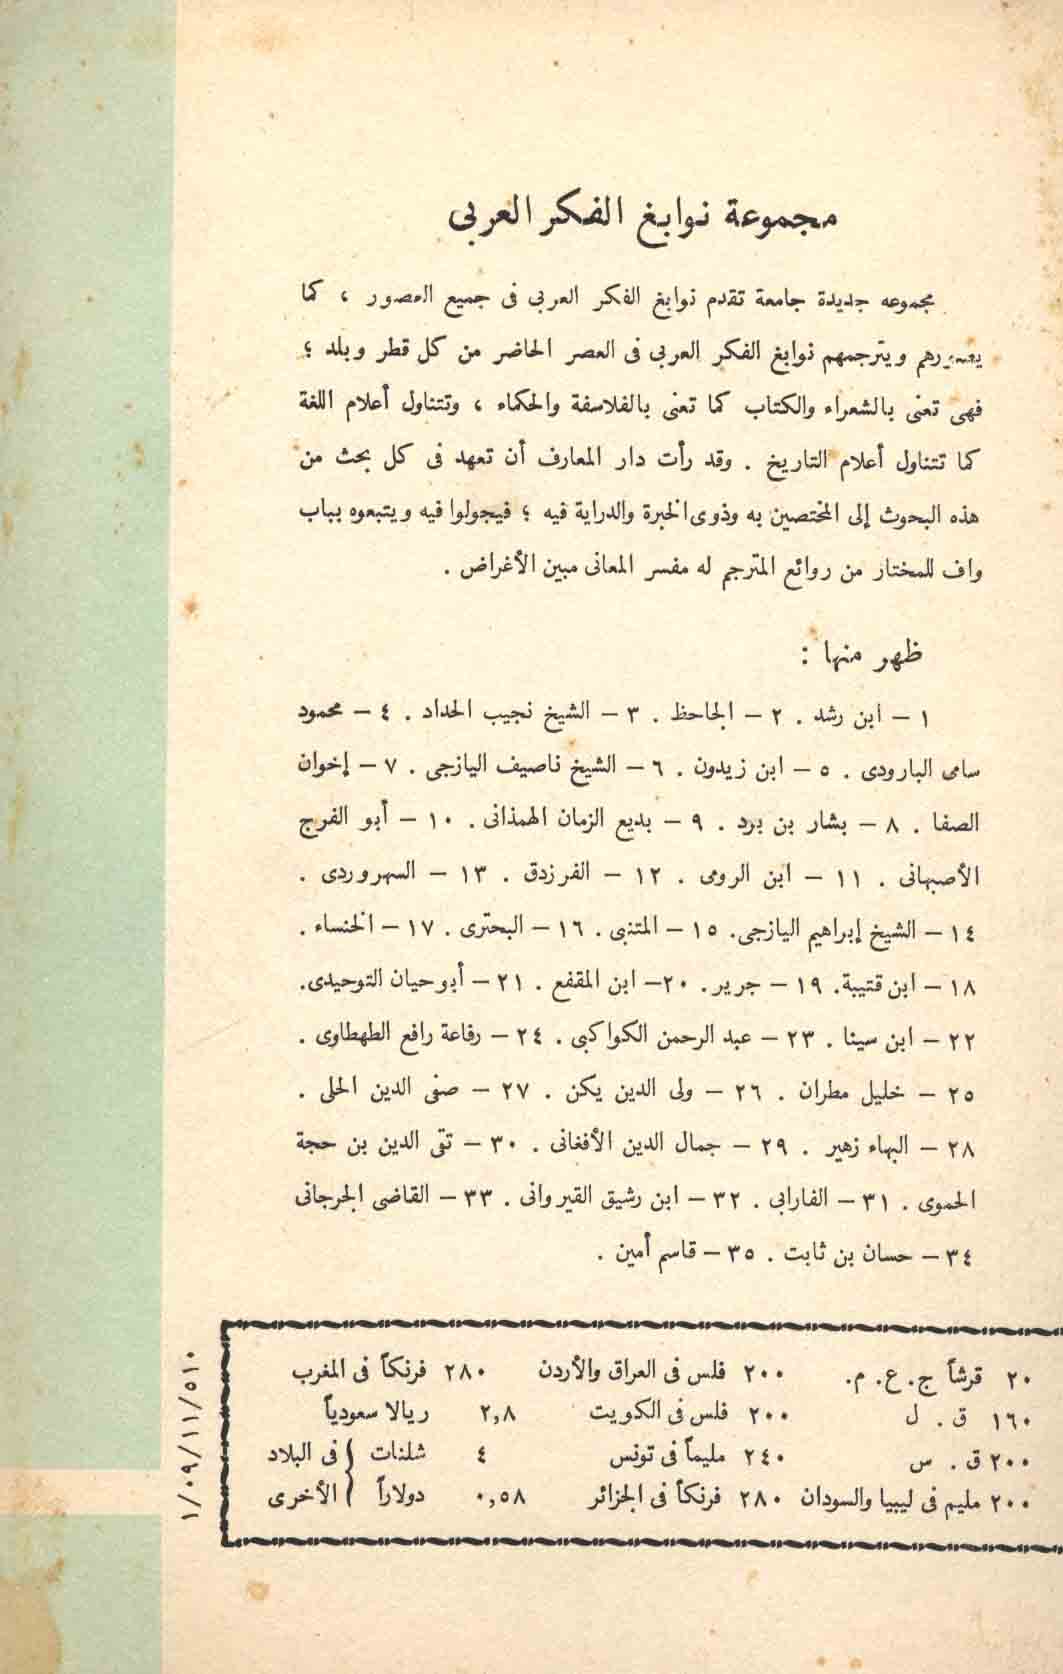 مجموعة نوابغ الفكر العربى
مجموعه جديدة جامعة تقدم نوابغ الفكر العربى فى جميع العصور ، كما
ويترجمهم نوابغ الفكر العربى فى العصر الحاضر من كل قطر وبلد ؛
فهى تعنى بالشعراء والكتاب كما تعنى بالفلاسفة والحكماء ، وتتناول أعلام اللغة
كما تتناول أعلام التاريخ . وقد رأت دار المعارف أن تعهد فى كل بحث من
هذه البحوث إلى المختصين به وذوى الخبرة والدراية فيه ؛ فيجولوا فيه ويتبعوه بباب
واف للمختار من روائع المترجم له مفسر المعانى مبين الأغراض .
ظهر منها :
١ – ابن رشد . ٢ – الجاحظ . ٣ – الشيخ نجيب الحداد . ٤ – محمود
سامى البارودى . ٥ – ابن زيدون . ٦ – الشيخ ناصيف اليازجى . ٧ – إخوان
الصفا . ٨ – بشار بن برد . ٩ – بديع الزمان الهمذانى . ١٠ – أبو الفرج
الأصبهانى . ١١ – ابن الرومى . ١٢ – الفرزدق . ١٣ – السهروردى .
١٤ – الشيخ إبراهيم اليازجى. ١٥ – المتنبى . ١٦ – البحترى . ١٧ – الخنساء .
١٨ – ابن قتيبة. ١٩ – جرير. ٢٠– ابن المقفع . ٢١ – أبو حيان التوحيدى.
٢٢ – ابن سينا . ٢٣ – عبد الرحمن الكواكبى . ٢٤ – رفاعة رافع الطهطاوى .
٢٥ – خليل مطران . ٢٦ – ولى الدين يكن . ٢٧ – صفى الدين الحلى .
٢٨ – البهاء زهير . ٢٩ – جمال الدين الأفغانى . ٣٠ – تقى الدين بن حجة
الحموى . ٣١ – الفارابى . ٣٢ – ابن رشيق القيروانى . ٣٣ – القاضى الجرجانى
٣٤ – حسان بن ثابت . ٣٥ – قاسم أمين .
٢٠ قرشاً ج. ع. م. ٢٠٠ فلس فى العراق والأردن ٢٨٠ فرنكاً فى المغرب
١٦٠ ق . ل ٢٠٠ فلس فى الكويت ٢,٨ ريالا سعودياً
٢٠٠ ق . س ٢٤٠ مليماً فى تونس ٤ شلنات فى البلاد
٢٠٠ مليم فى ليبيا والسودان ٢٨٠ فرنكاً فى الجزائر ٠,٥٨ دولاراً الأخرى
١/٥٩/١١/٥١٠